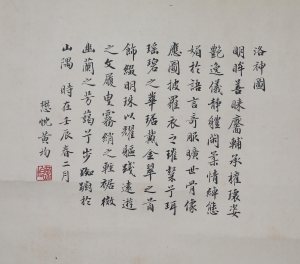 洛神圖
明眸善睞靨輔承權瓌姿
艷逸儀靜體閑柔情綽態
媚於語言奇服曠世骨像
應圖披羅衣之璀粲兮珥
瑤碧之華琚戴金翠之首
飾綴明珠以耀軀踐遠遊
之文履曳霧綃之輕裾微
幽蘭之芳藹兮步踟躕於
山隅 時在壬辰春二月
懋忱黃均